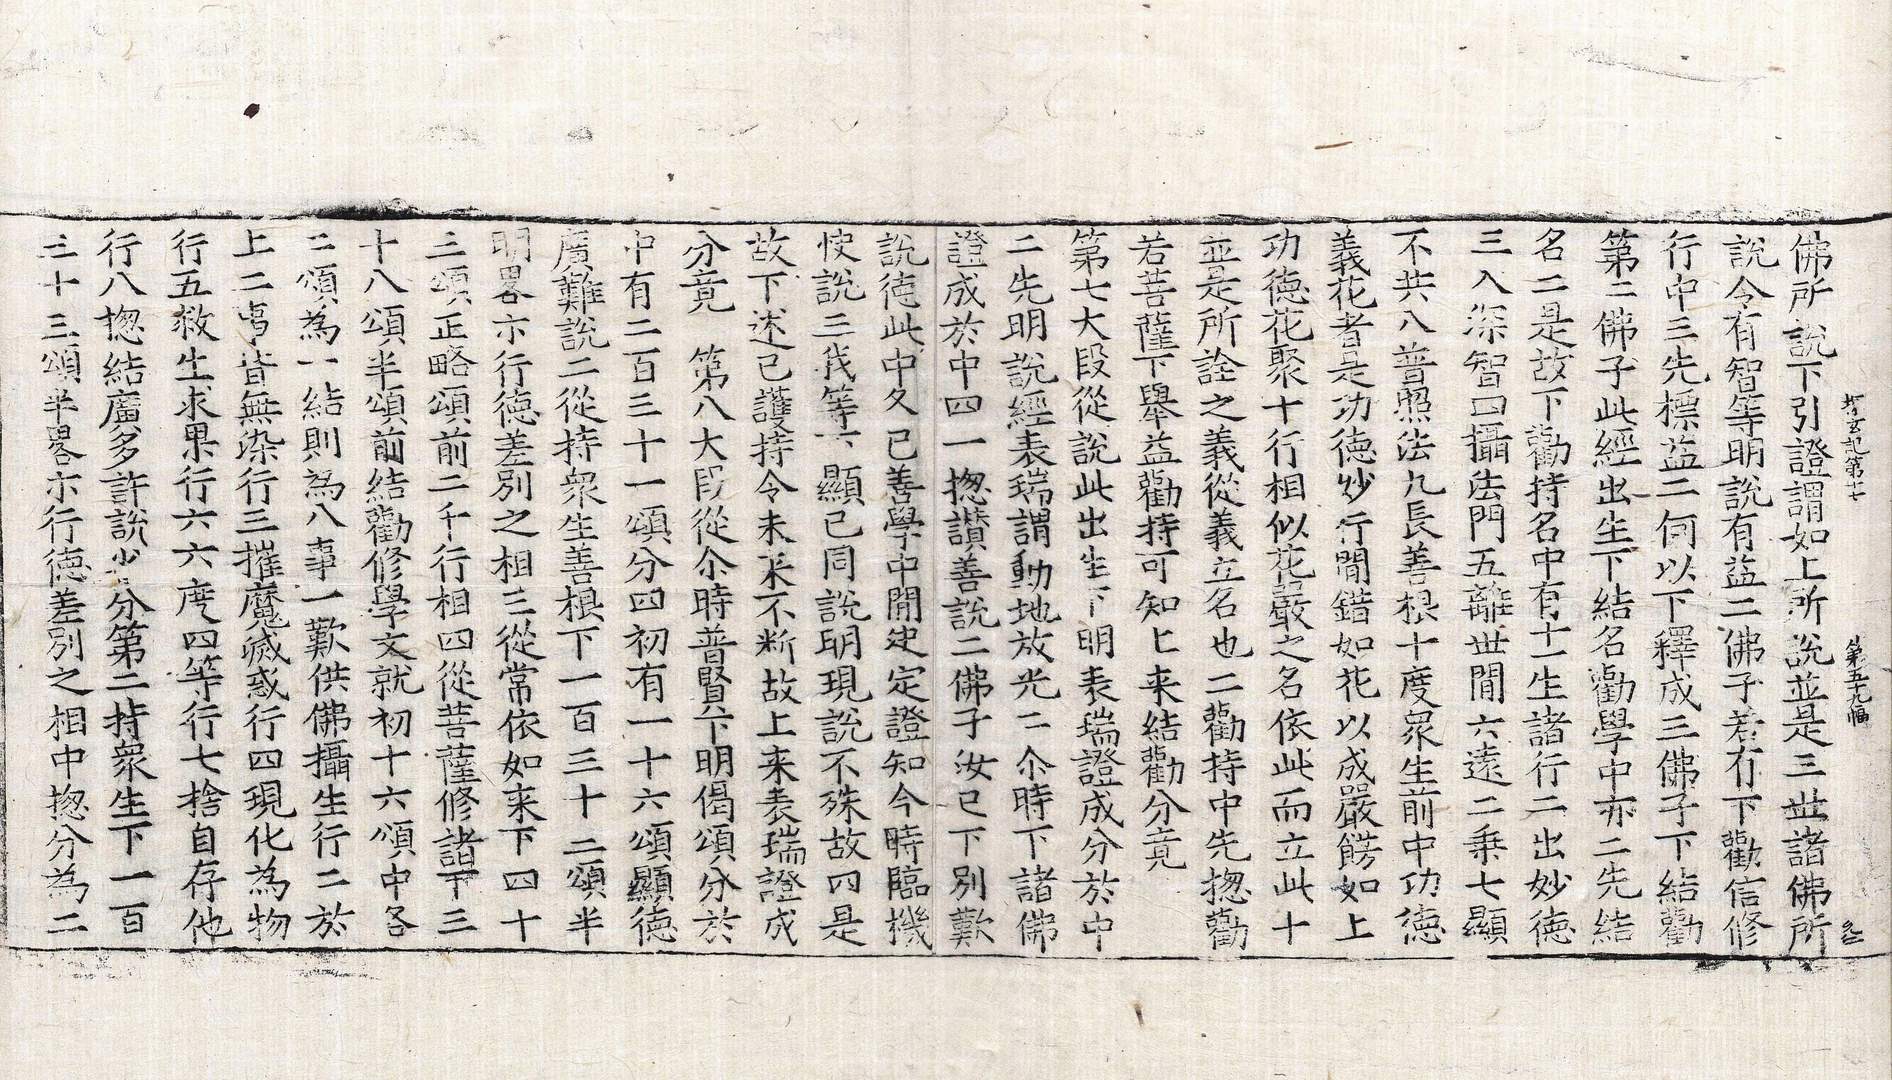 佛所說下引證謂如上所說並是三世諸佛所
探玄記第十七 第五十九幅
說令有智等明說有益二佛子若有下勸信修
行中三先標益二何以下釋成三佛子下結勸
第二佛子此經出生下結名勸學中亦二先結
名二是故下勸持名中有十一生諸行二出妙德
三入深智四攝法門五離世間六遠二乗七顯
不共八普照法九長善根十度衆生前中功德
義花者是功德妙行間錯如花以成嚴餝如上
功德花聚十行相似花嚴之名依此而立此十
並是所詮之義從義立名也二勸持中先揔勸
若菩薩下舉益勸持可知上来結勸分竟
第七大段從說此出生下明表瑞證成分於中
二先明說經表瑞謂動地放光二尒時下諸佛
證成於中四一揔讃善說二佛子汝已下別歎
說德此中文已善學中聞定證知今時臨機
使說三我等下顯己同說明現說不殊故四是
故下述己護持令未来不断故上来表瑞證成
分竟 第八大段從尒時普賢下明偈頌分於
中有二百三十一頌分四初有一十六頌顯德
廣難說二從持衆生善根下一百三十二頌半
明畧亦行德差別之相三從常依如来下四十
三頌正略頌前二千行相四從菩薩修諸下三
十八頌半頌前結勸修學文就初十六頌中各
二頌為一結則為八事一歎供佛攝生行二於
上二事皆無染行三摧魔滅惑行四現化為物
行五救生求果行六六度四等行七捨自存他
行八揔結廣多許說少分第二持衆生下一百
三十三頌半畧示行德差別之相中揔分為二